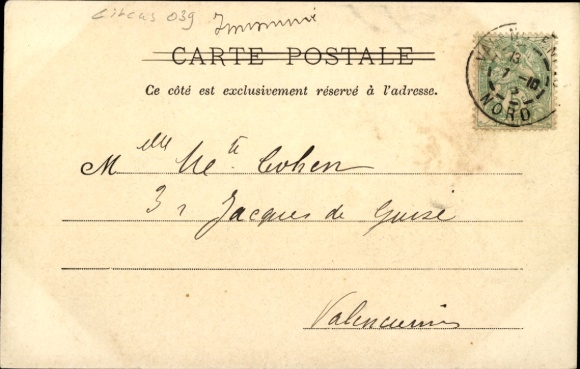 Circus 039 Imprimé
CARTE POSTALE
Ce côté est exclusivement réservé à l'adresse.
Melle Cohen
3 r Jacques de Guise
Valenciennes
NORD